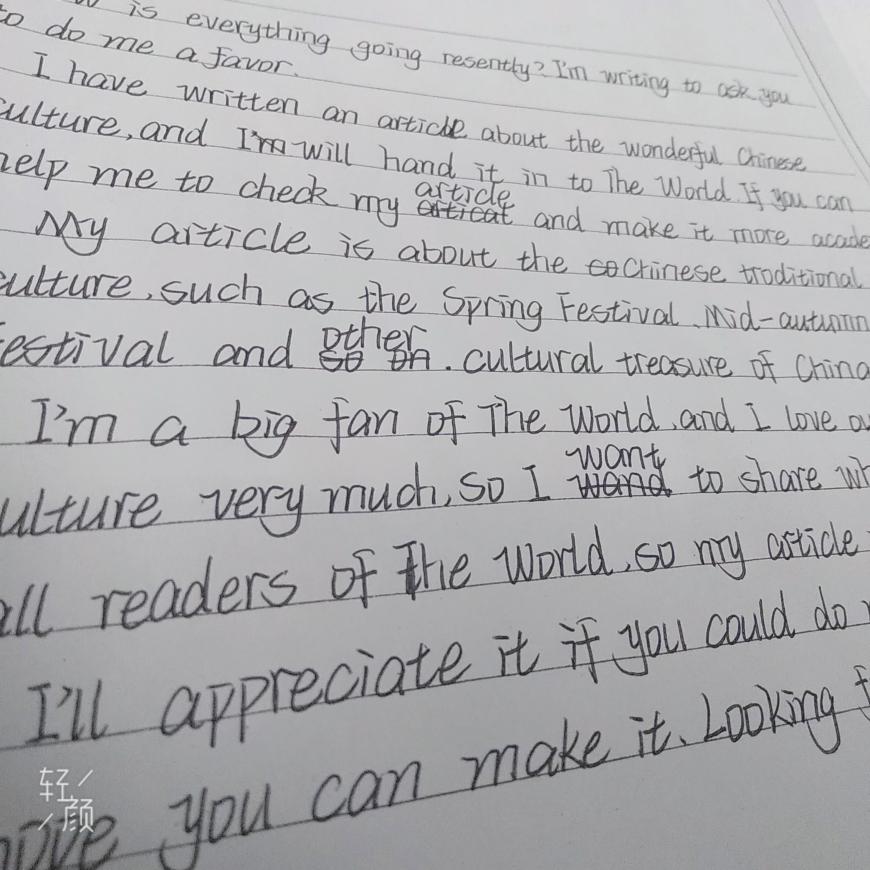 is everything going resently? I'm writing to ask you
to do me a favor.
I have written an article about the wonderful Chinese
culture, and I'm will hand it in to The World. If you can
help me to check my articat article and make it more acade
My article is about the co Chinese traditional
culture, such as the Spring Festival, Mid-autumn
estival and so on other. cultural treasure of China
I'm a big fan of The World, and I love ou
ulture very much, so I wand want to share wh
all readers of The World, so my article
I'll appreciate it if you could do
you can make it. Looking f
轻颜